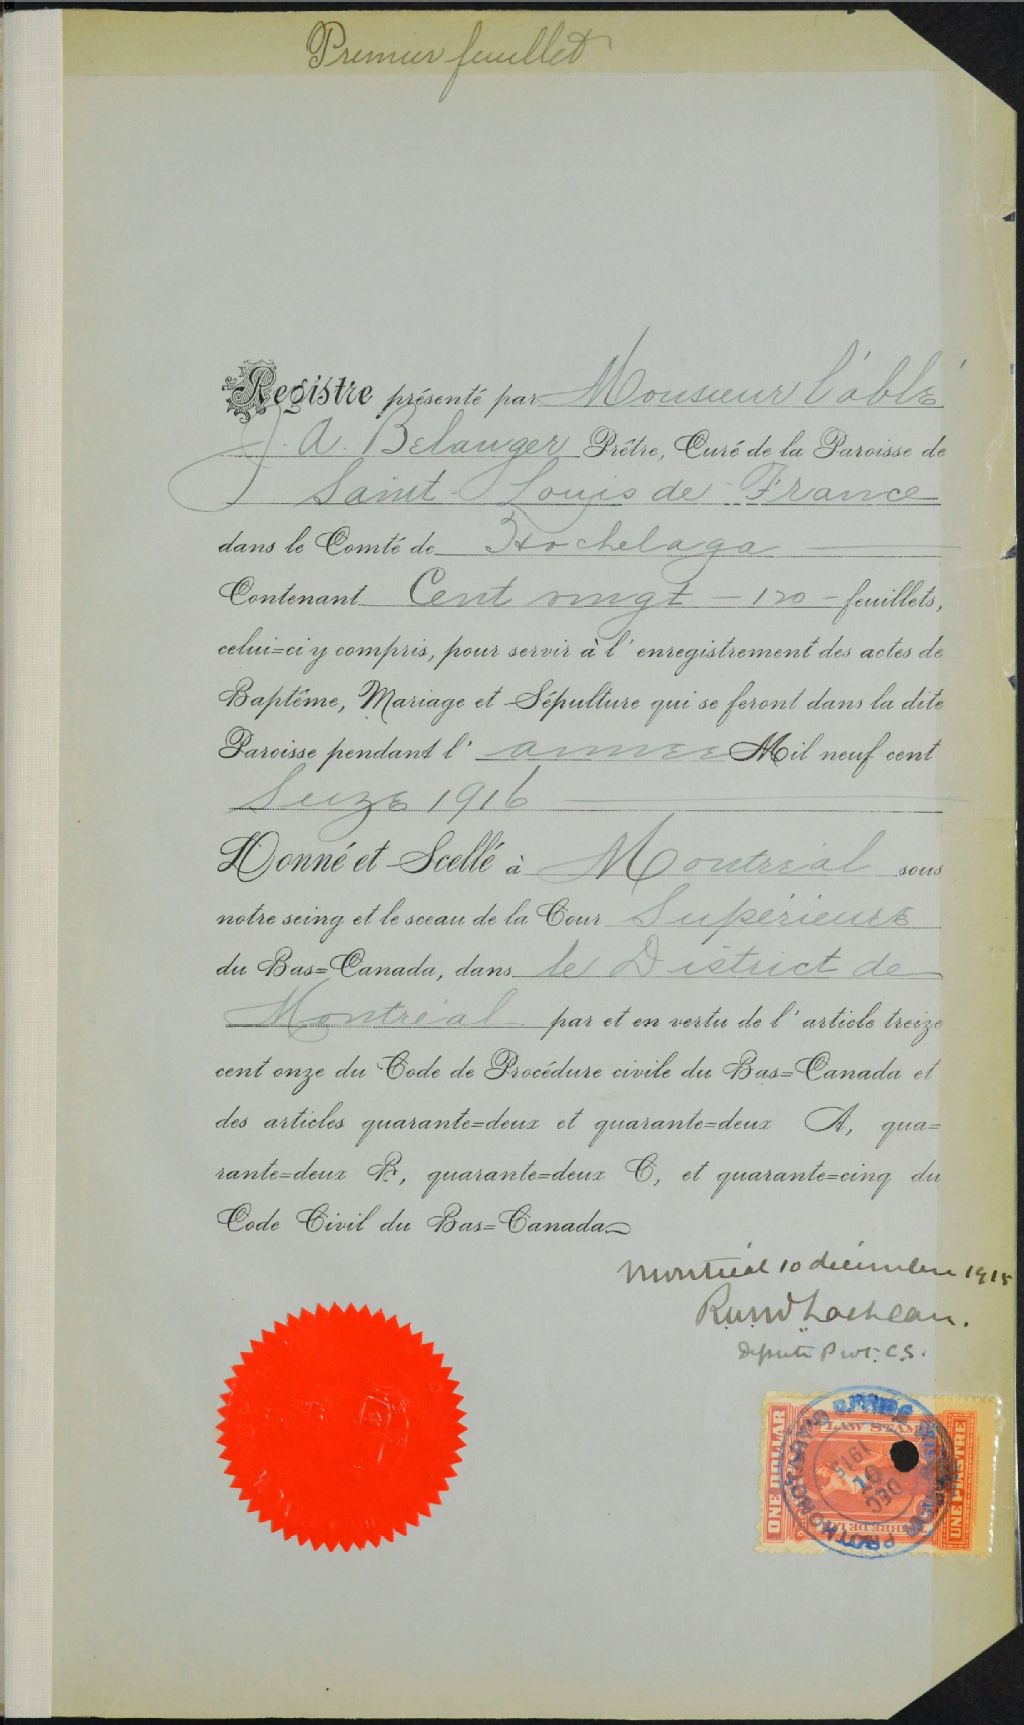 Premier feuillet
Registre présenté par Monsieur l'abbé
J. A. Belanger Prêtre, Curé de la Paroisse de
Saint-Louis de France
dans le Comté de Hochelaga
Contenant Cent vingt - 120 - feuillets,
celui=ci y compris, pour servir à l'enregistrement des actes de
Baptême, Mariage et Sépulture qui se feront dans la dite
Paroisse pendant l'année Mil neuf cent
Seize 1916
Donné et Scellé à Montréal sous
notre seing et le sceau de la Cour Supérieure
du Bas=Canada, dans le District de
Montréal par et en vertu de l'article treize
cent onze du Code de Procédure civile du Bas=Canada et
des articles quarante=deux et quarante=deux A, qua=
rante=deux B, quarante=deux C, et quarante=cinq du
Code Civil du Bas=Canada
Montréal 10 décembre 1915
Député Prot. C.S.
ONE DOLLAR
LAW STAMP
TIMBRE DE LOI
UNE PIASTRE
PROTHONOTARY'S OFFICE
DEC
10
1915